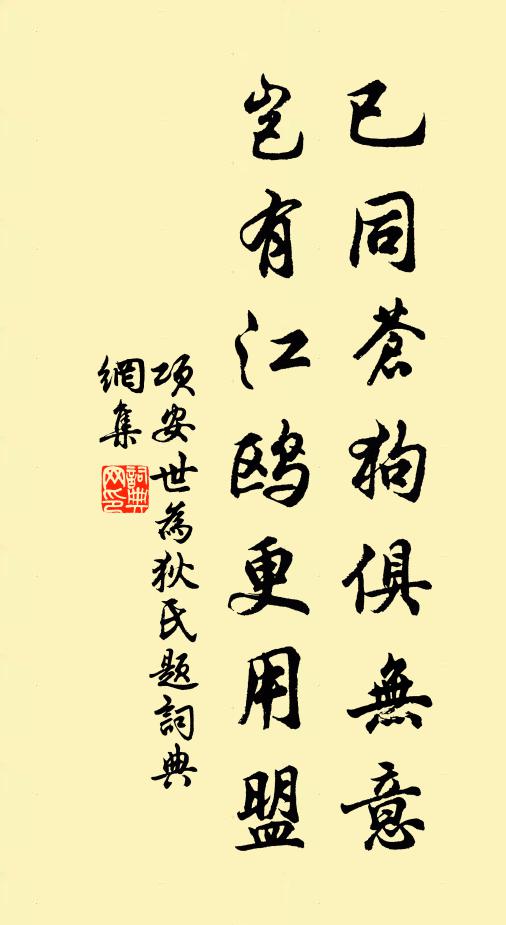 已同蒼狗俱無意
豈有江鷗更用盟
項安世為狄氏題詞典
網集
詞典網印